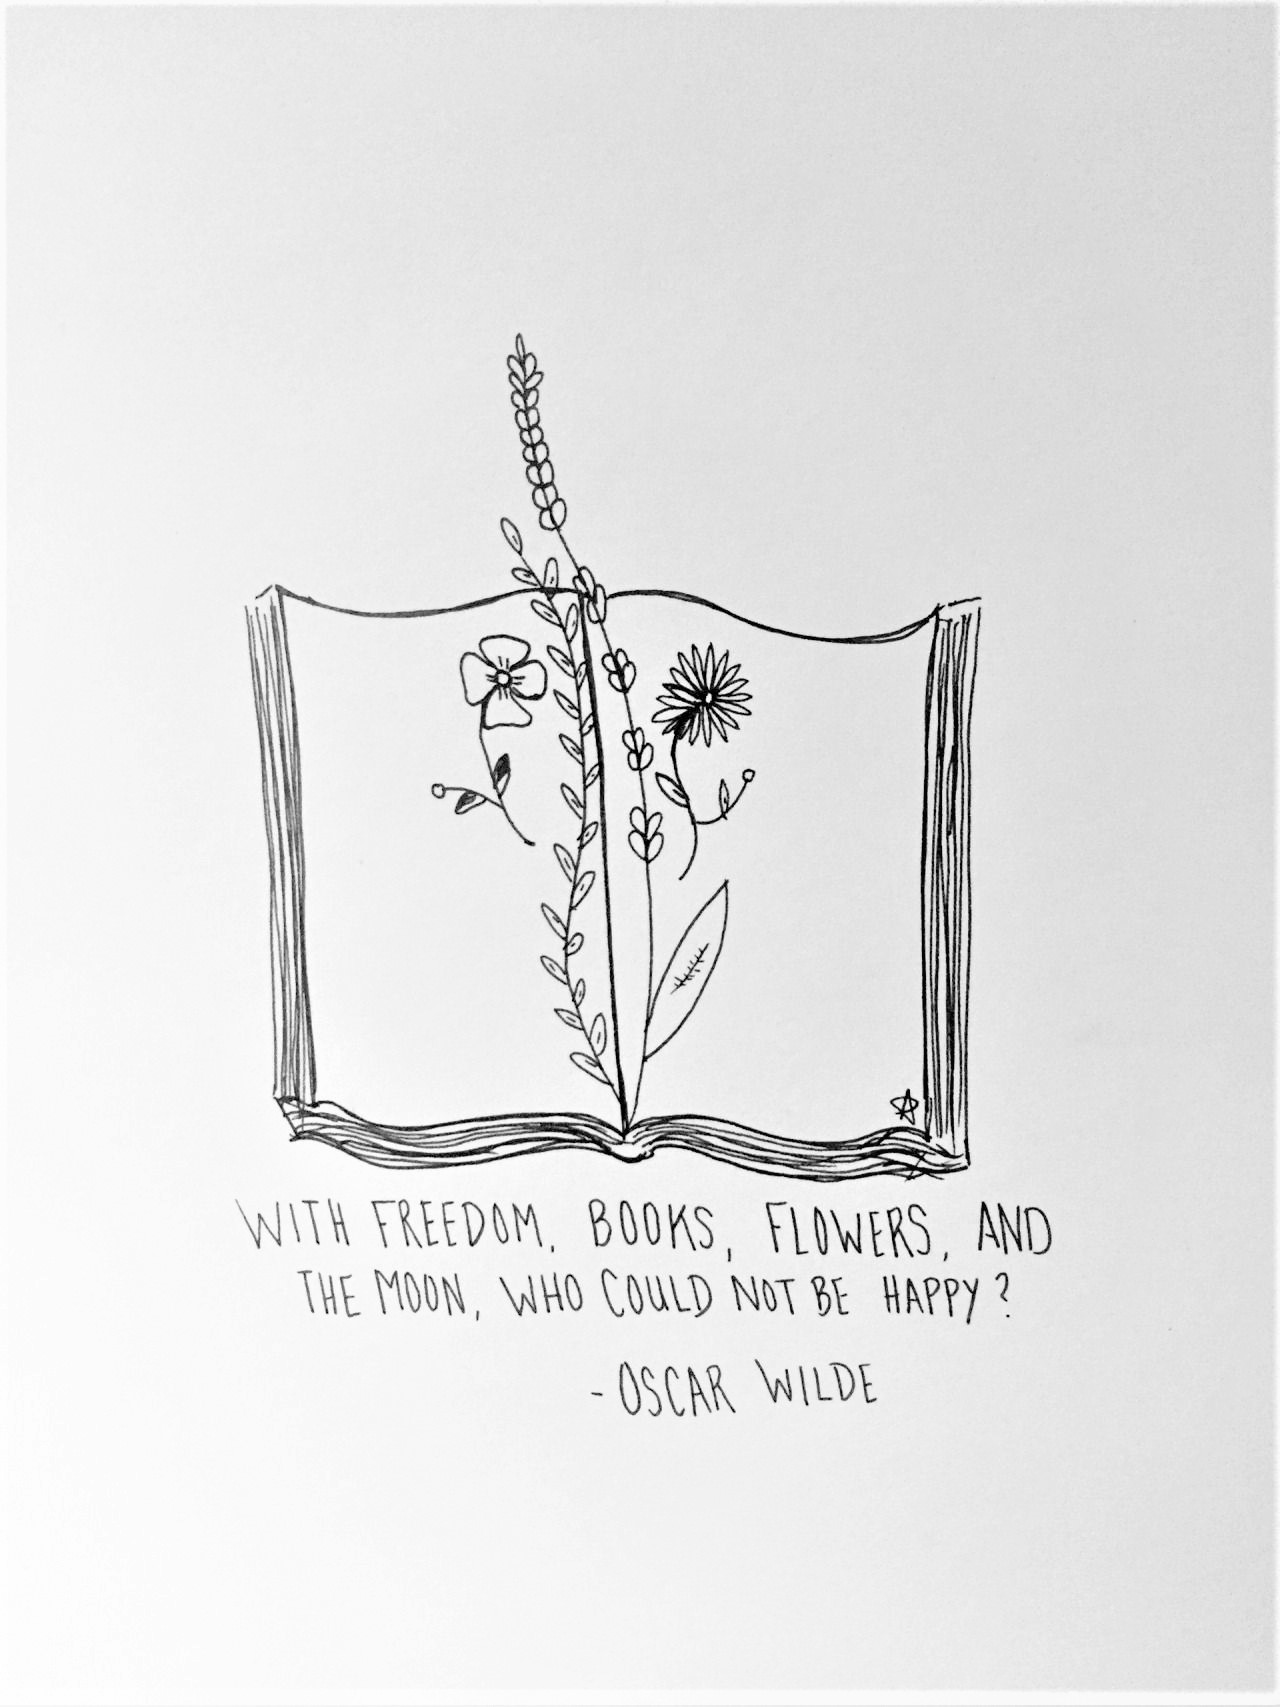 WITH FREEDOM, BOOKS, FLOWERS, AND
THE MOON, WHO COULD NOT BE HAPPY?
- OSCAR WILDE